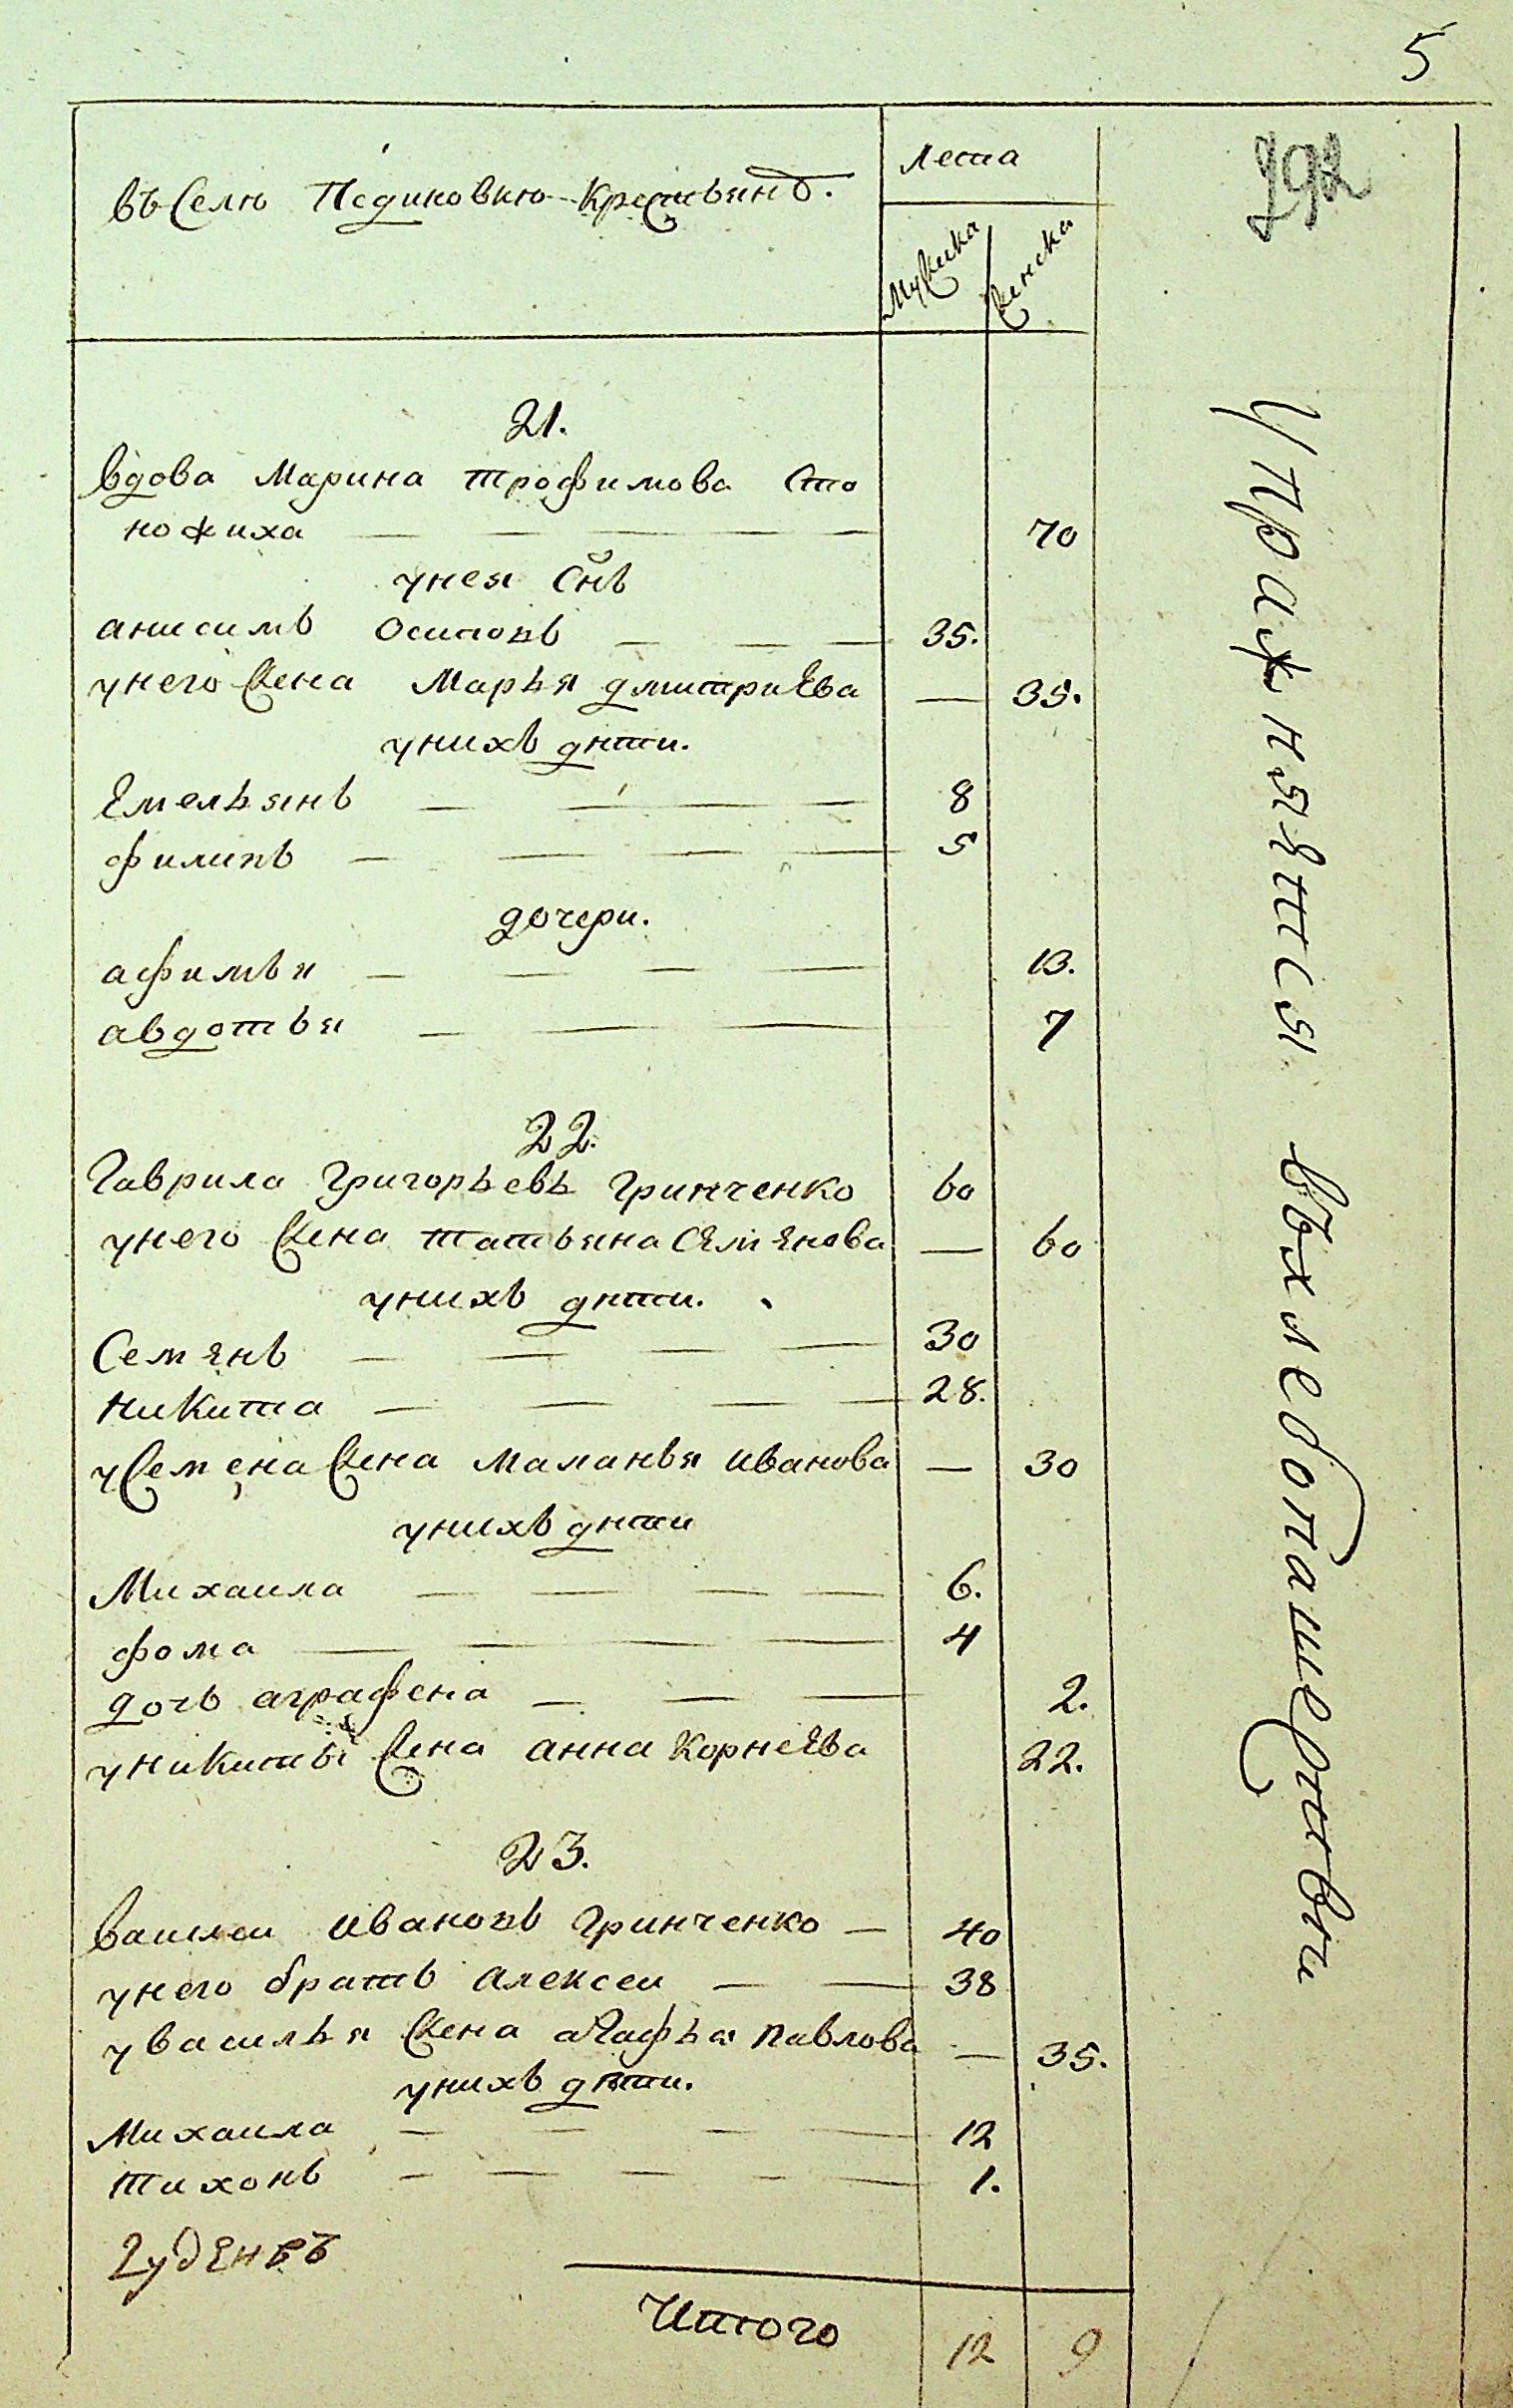 5
792
въ Селѣ Пединовкѣ Крестьянъ.
лета
Мужеска
женска
21.
вдова Марина Трофимова Сто
ножиха 70
унея Снъ
анисимъ Осиповъ 35.
унего жена Марья дмитриева 35.
унихъ дѣти.
Емельянъ 8
филипъ 5
дочери.
афимья 13.
авдотья 7
22.
Гаврила Григорьевъ Гринченко 60
унего жена татьяна Семенова 60
унихъ дѣти.
Семенъ 30
никита 28.
уСемена жена маланья иванова 30
унихъ дѣти
Михаила 6.
фома 4
дочь аграфена 2.
уникиты жена анна Корнеева 22.
23.
василеи ивановъ Гринченко 40
унего братъ алексеи 38
увасилья жена агафья павлова 35.
унихъ дѣти.
Михаила 12
тихонъ 1.
Итого 12 9
Упражняятся вхлебопашерставѣ